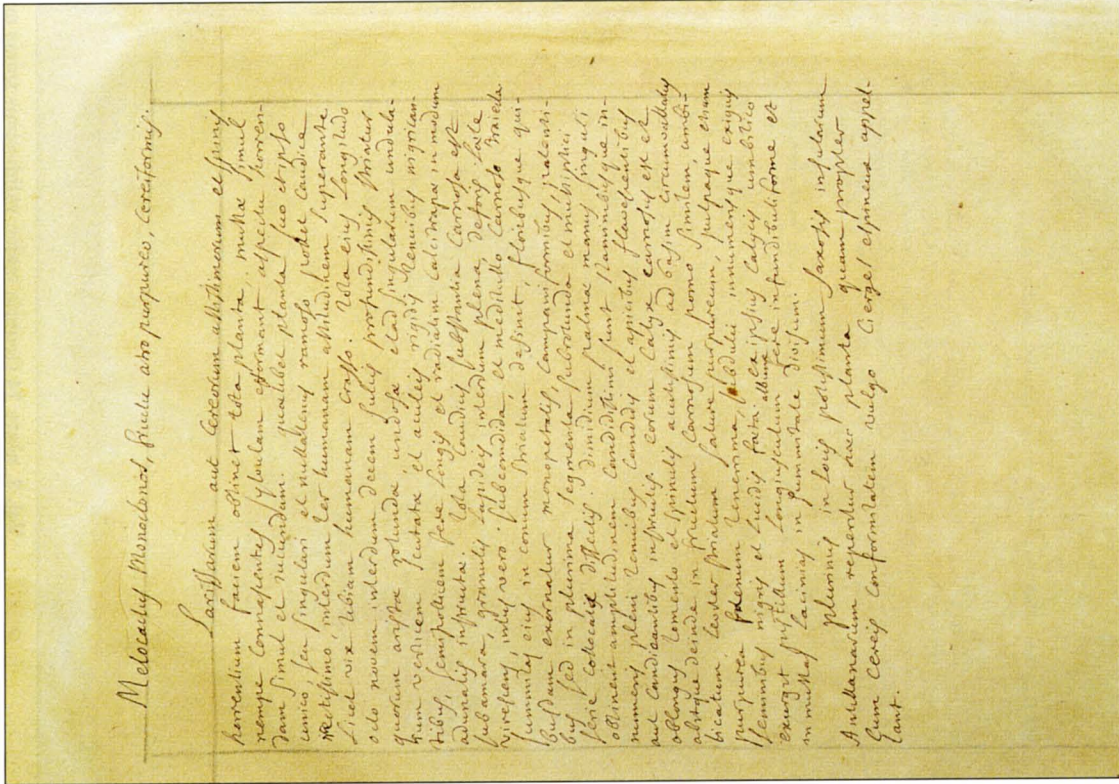 Melocactus Monoclonos, fructu atro purpureo, cereiformis.
Larissarum aut cereorum altissimorum et spinis
horrentium faciem obtinet tota planta, multæ simul
nempe connascentes sylvulam efformant aspectu horren-
dam simul et iucundam. quælibet planta suo et ipso
unico, seu singulari et nullatenus ramoso potest caudice
rectissimo, interdum ter humanam altitudinem superante
licet vix tibiam humanam crasso. tota eius longitudo
octo novem interdum decem sulcis profundissimis striatur
quorum arista rotunda undosa et ad singularum undula-
rum verticem scutata et aculeis rigidis tenuibus nigrican-
tibus, semipollicem fere longis et radiatim calcitrapæ in modum
adunatis instructa. tota caudicis substantia carnosa est
subamara, granulis lapideis interdum plena, deforis læte
virescens, intus vero subcandida et meditullo carnoso traiecta
summitas eius in conum striatum desinit, floribusque qui-
busdam exornatur monopetalis, campaniformibus, patenti-
bus sed in plurima segmenta subrotunda et multiplici
serie collocata dissectis. dimidium palmæ manus singuli
obtinent amplitudinem candidissimi sunt staminibusque in-
numeris pleni tenuibus candidis et apicibus flavescentibus
aut candicantibus instructis eorum calyx carnosus est et
oblongus tomento et spinulis acutissimis ad basim circumvallatus
abitque deinde in fructum carnosum pomo similem, umbi-
licatum, leviter striatum sature purpureum, pulpaque etiam
purpurea tenerrima, subdulci innumerisque exiguis
seminibus nigris et lucidis fœta ex ipsius calycis umbilico
exurgit pistillum longiusculum album fere infundibuliforme et
in multas lacinias in summitate divisum.
plurimis in locis potissimum saxosis insularum
Antillanarum reperitur hæc planta quam propter
suam cereis conformitatem vulgo Cierges espineux appel-
lant.